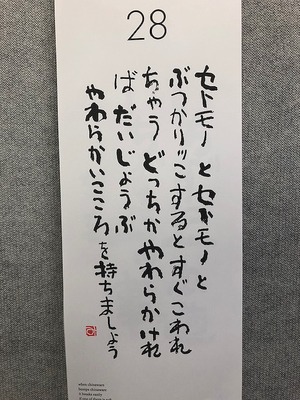 28
セトモノとセトモノと
ぶつかりッこするとすぐこわれ
ちゃう どっちかやわらかけれ
ば だいじょうぶ
やわらかいこころを持ちましょう
when chinaware
bumps chinaware
it breaks easily